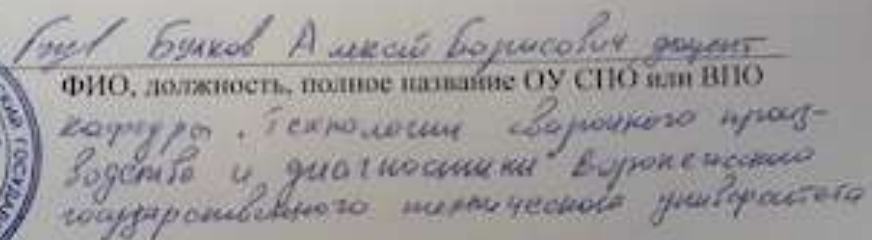 Булков Алексей Борисович доцент
ФИО, должность, полное название ОУ СПО или ВПО
кафедры "Технологии сварочного произ-
водства и диагностики" Воронежского
государственного технического университета